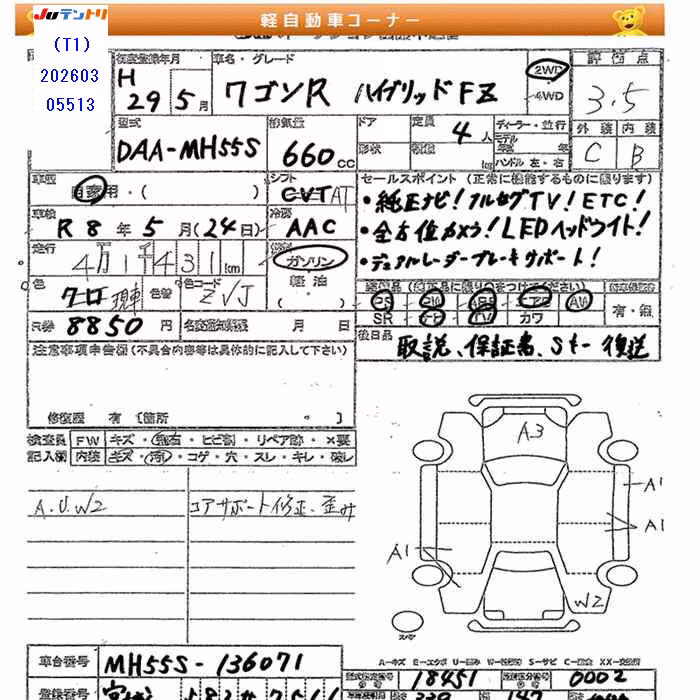 Juテントリ
軽自動車コーナー
(T1)
202603
05513
初度登録年月
車名・グレード
評価点
H 29年 5月
ワゴンR ハイブリッドFZ
2WD
4WD
3.5
型式
排気量
ドア
定員
4人
ディーラー・並行
モデル
年
外装
内装
DAA-MH55S
660cc
形状
ハンドル 左・右
C
B
車歴
自家用・( )
シフト
CVT AT
セールスポイント(正常に機能するものに限ります)
・純正ナビ!フルセグTV!ETC!
・全方位カメラ!LEDヘッドライト!
・デュアルレーダーブレーキサポート!
車検
R8年5月(24日)
冷房
AAC
走行
4万1千431km
ガソリン
軽油
色
クロ
色替
色コード
ZVJ
PS
PW
エアB
AW
SR
TV
カワ
有・無
8850円
名変通知期限
月
日
後日品
取説、保証書、St-後送
注意事項申告欄(不具合内容等は具体的に記入して下さい)
修復歴 有 〔箇所 〕
検査員
記入欄
FW
キズ・飛石・ヒビ割・リペア跡・×要
内装
キズ・汚・コゲ・穴・スレ・キレ・破レ
A.U.W2
コアサポート修正、歪み
A3
A1
A1
A1
W2
スペア
A-キズ E-エクボ U-凹み W-波状 S-サビ C-腐食 XX-交換
車台番号
MH55S-136071
型式指定番号
18451
類別区分番号
0002
登録番号